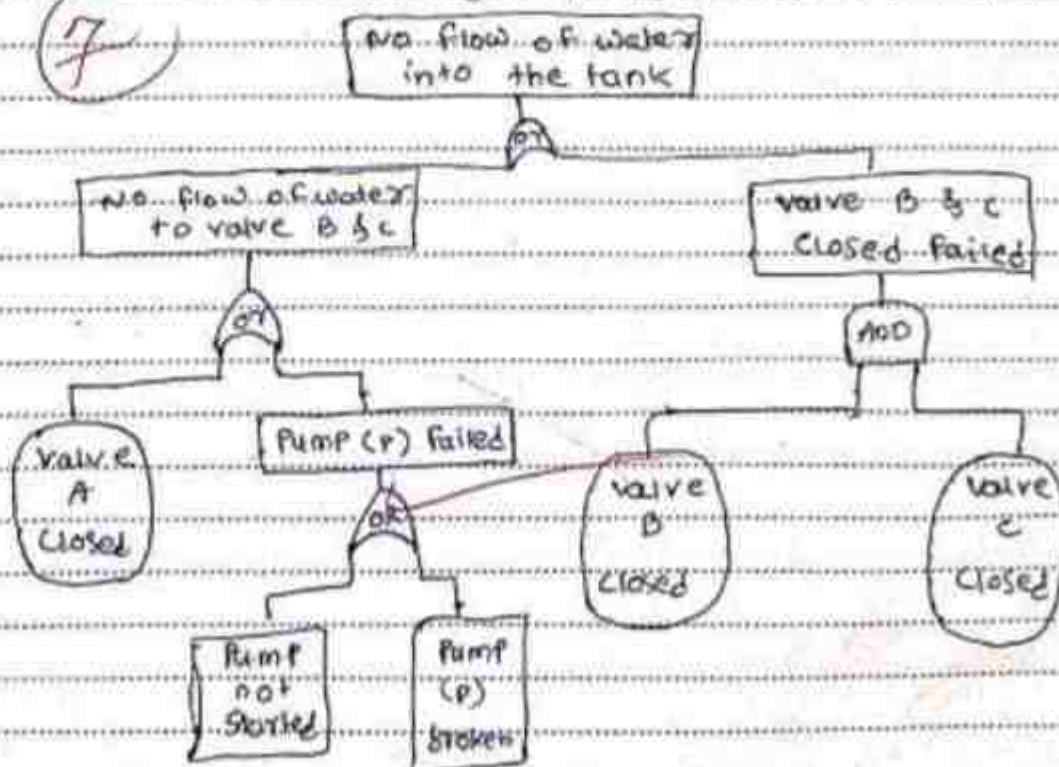 7
No flow of water
into the tank
or
No flow of water
to valve B & C
valve B & C
Closed Failed
or
AND
valve
A
Closed
Pump (P) Failed
valve
B
Closed
valve
C
Closed
OR
Pump
not
Started
Pump
(P)
broken